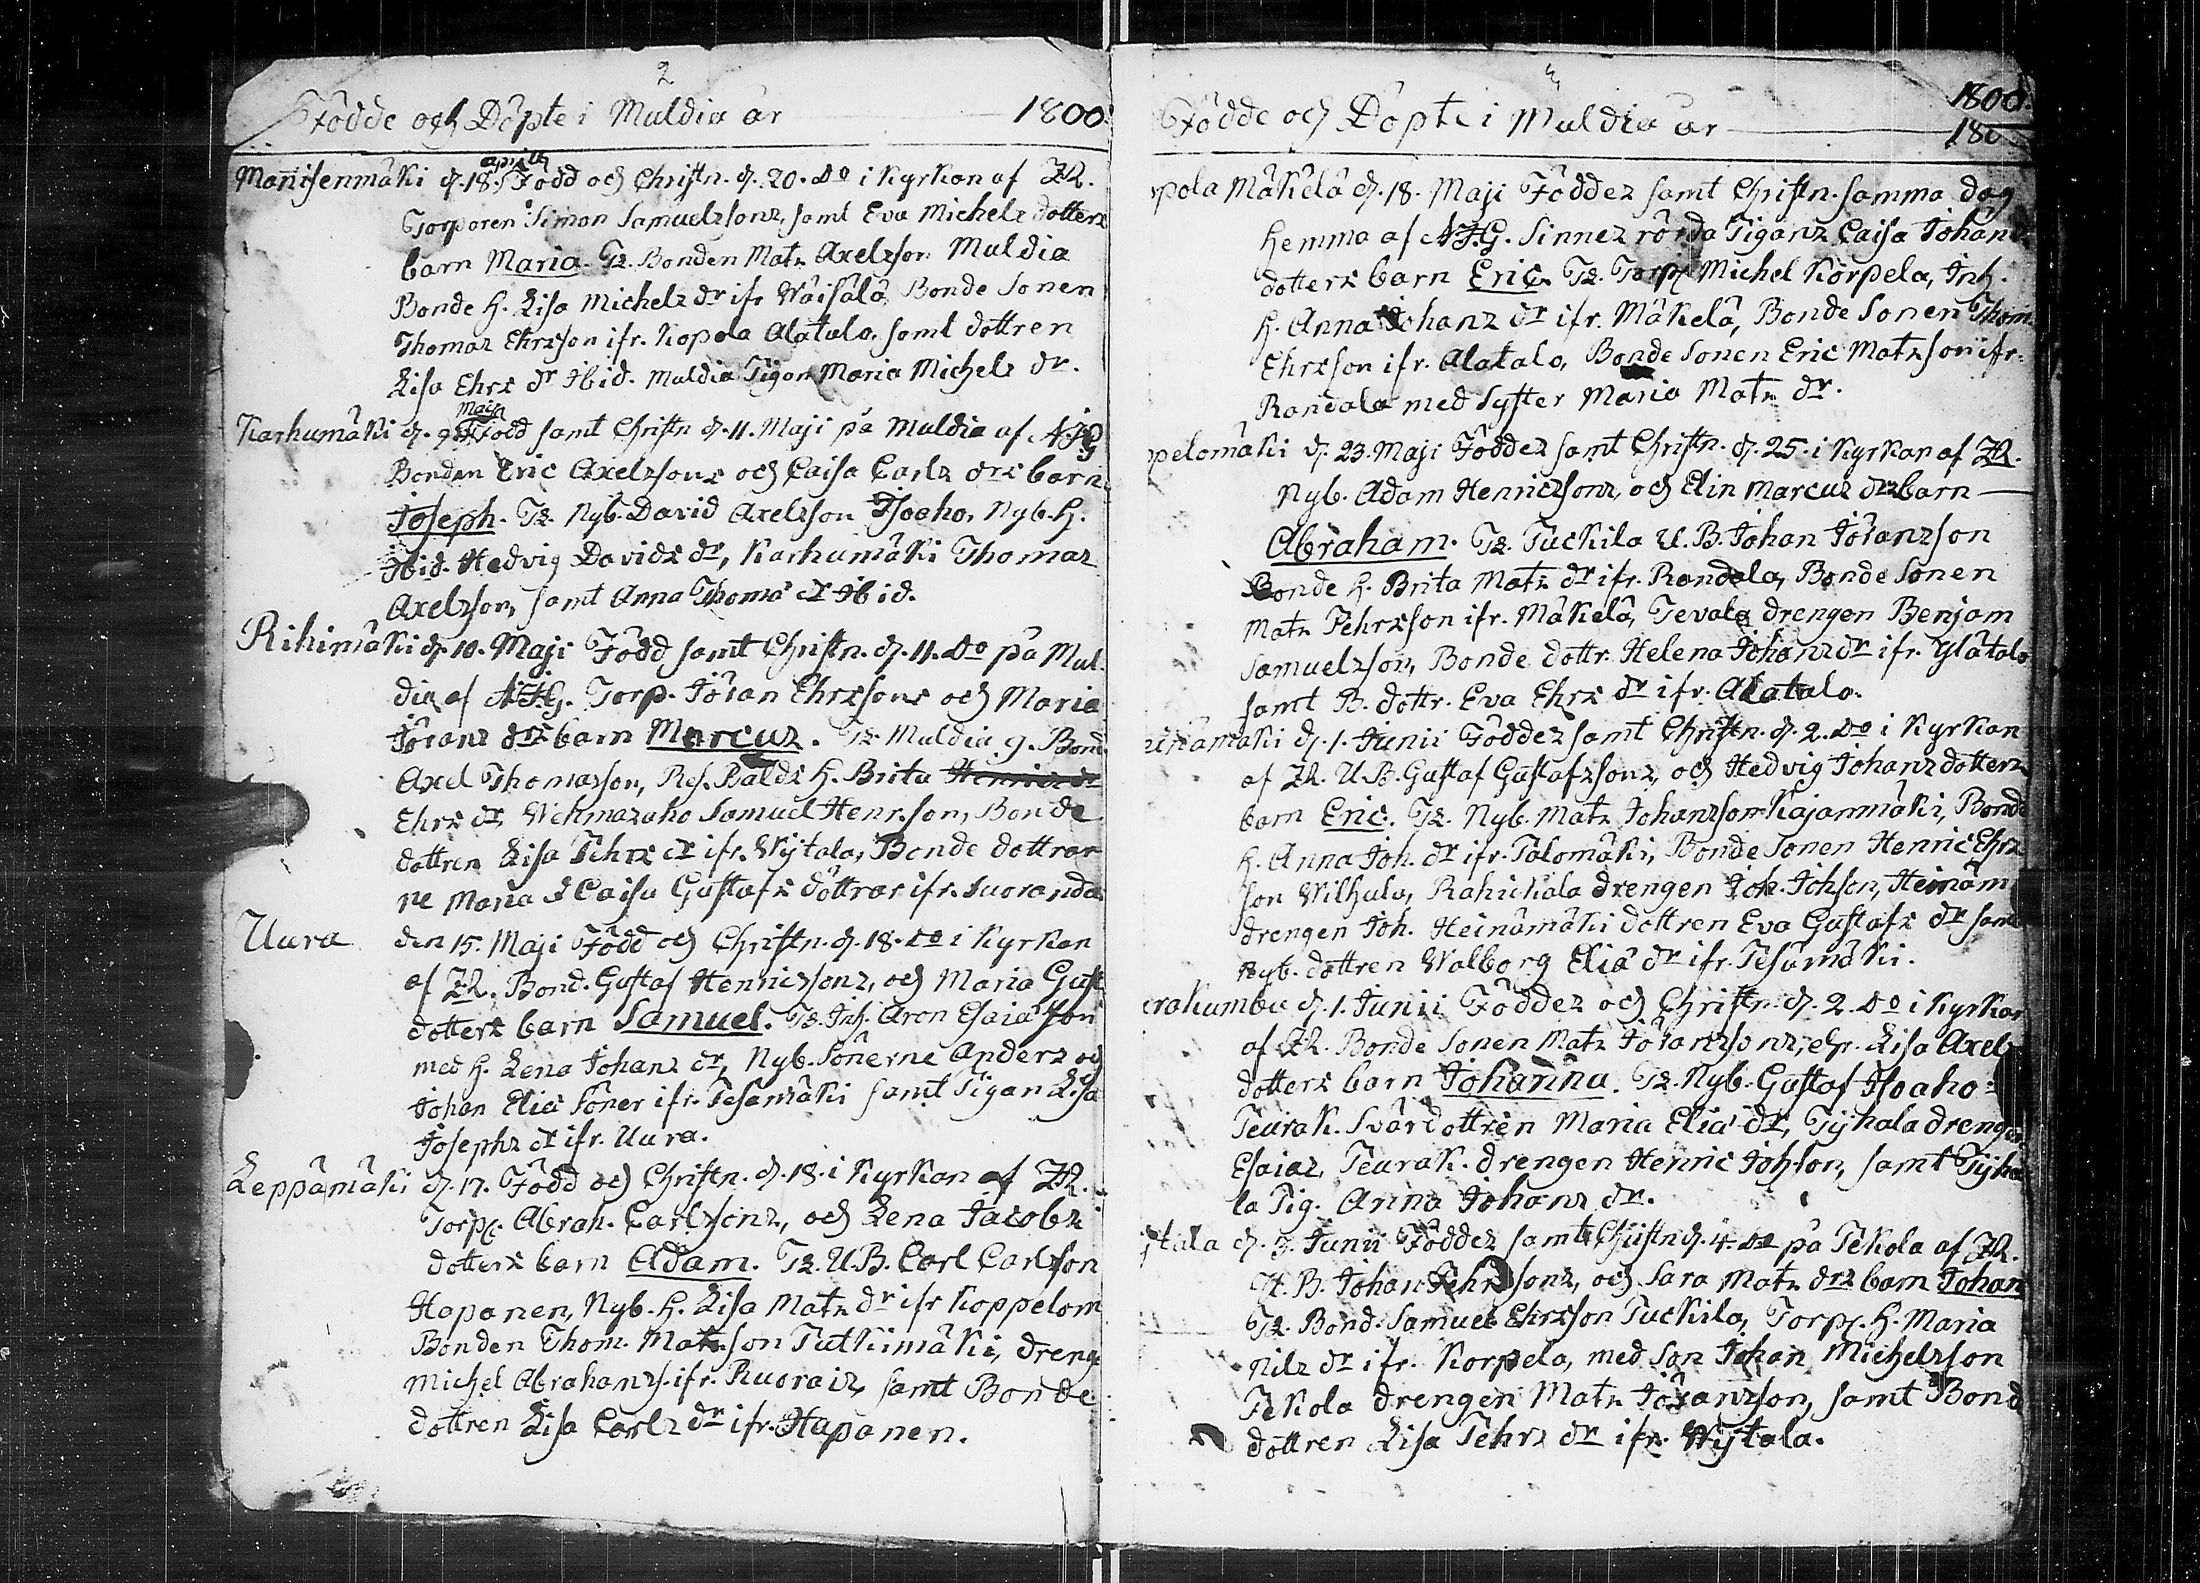 2
Födde och Döpte i Muldia år 1800
Manisenmäki d. 18. aprill Född och Christn. d. 20. do i Kyrkan af ZR.
Torparen Simon Samuelssons, samt Eva Michels dotters
barn Maria. Ts. Bonden Mats Axelsson Muldia
Bonde h. Lisa Michels dr ifr. Wäisälä, Bonde Sonen
Thomas Ehrsson ifr. Kopola Alatalo, samt dottren
Lisa Ehrs dr Ibid. Muldia Pigan Maria Michels dr.
Karhumäki d. 9. Maji Född samt Christn d. 11. Maji på Muldia af AHG
Bonden Eric Axelssons och Caisa Carls drs barn
Joseph. Ts. Nyb. David Axelsson Isoaho, Nyb. h.
Ibid. Hedvig Davids dr, Karhumäki Thomas
Axelsson, samt Anna Thoma dr Ibid.
Rihimäki d. 10. Maji Född samt Christn. d. 11. do på Mul-
dia af AHG. Torp. Jöran Ehrssons och Maria
Jörans drs barn Marcus. Ts. Muldia g. Bond.
Axel Thomasson, Res. Balds h. Brita Henrics dr
Ehrs dr, Wehmasaho Samuel Henr.son, Bonde
dottren Lisa Pehrs dr ifr. Wijtala, Bonde dottrar
ne Maria & Caisa Gustafs döttrar ifr. Suoranda
Uura den 15. Maji Född och Christn. d. 18. do i Kyrkan
af ZR. Bond. Gustaf Henricssons, och Maria Gust.
dotters barn Samuel. Ts. Inh. Aron Esaiæ son
med h. Lena Johans dr, Nyb. Sönerne Anders och
Johan Eliæ Söner ifr. Pesämäki samt Pigan Lisa
Josephs dr ifr. Uura.
Leppämäki d. 17. Född och Christn. d. 18. i Kyrkan af ZR.
Torp. Abrah. Carlssons, och Lena Jacobs
dotters barn Adam. Ts. U.B. Carl Carlsson
Haponen, Nyb. h. Lisa Mats dr ifr Koppelom
Bonden Thom. Matsson Putkimäki, dreng
Michel Abrahams. ifr. Ruorais, samt Bonde
dottren Lisa Carls dr ifr. Haponen.
Födde och Döpte i Muldia år 1800.
180
pola Mäkelä d. 18. Maji Föddes samt Christn. samma dag
hemma af AHG. Sinnes rörda Pigans Caisa Johans
dotters barn Eric. Ts. Torp. Michel Korpela, Inh.
h. Anna Johans dr ifr. Mäkelä, Bonde Sonen Thom.
Ehrsson ifr. Alatalo, Bonde Sonen Eric Matsson ifr.
Randala med Syster Maria Mats dr.
ppelomäki d. 23. Maji Föddes samt Christn. d. 25. i Kyrkan af ZR.
Nyb. Adam Henricssons, och Elin Marcus drs barn
Abraham. Ts. Tuckila U.B. Johan Jöransson
Bonde h. Brita Mats dr ifr. Randala, Bonde Sonen
Mats Pehrsson ifr. Mäkelä, Tevala drengen Benjam
Samuelsson, Bonde dottr. Helena Johans dr ifr. Ylätalo
samt B. dottr. Eva Ehrs dr ifr. Alatalo.
einämäki d. 1. Junii Föddes samt Christn. d. 2. do i Kyrkan
af ZR. U.B. Gustaf Gustafssons, och Hedvig Johans dotters
barn Eric. Ts. Nyb. Mats Johansson Kajanmäki, Bonde
h. Anna Joh. dr ifr. Talomäki, Bonde Sonen Henric Ehrs
son Wilhula, Rahickala drengen Joh. Johson, Heinäm
drengen Joh. Heinämäki dottren Eva Gustafs dr samt
Nyb. dottren Walborg Eliæ dr ifr. Pesämäki.
rakumbu d. 1. Junii Föddes och Christn. d. 2. do i Kyrkan
af ZR. Bonde Sonen Mats Jöranssons, och Lisa Axels
dotters barn Johanna. Ts. Nyb. Gustaf Isoaho
Peurak. Svärdottren Maria Eliæ dr, Tyhala drengen
Esaias, Peurak. drengen Henric Johson, samt Tyha
la Pig. Anna Johans dr.
jtala d. 3. Junii Föddes samt Christn d. 4. do på Pekola af ZR.
H. B. Johan Pehrssons, och Sara Mats drs barn Johan
Ts. Bond. Samuel Ehrsson Tuckila, Torp. h. Maria
Nils dr ifr. Korpela, med Son Johan Michelsson
Pekola drengen Mats Jöransson, samt Bond
dottren Lisa Pehrs dr ifr. Wijtala.